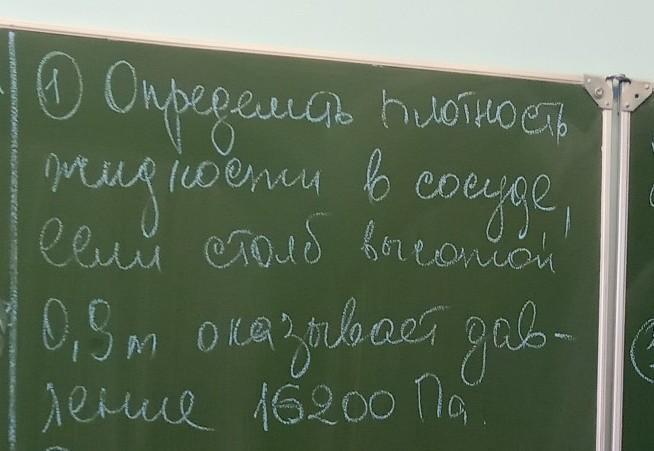 ① Определить плотность
жидкости в сосуде,
если столб высотой
0,9 м оказывает дав-
ление 16200 Па.